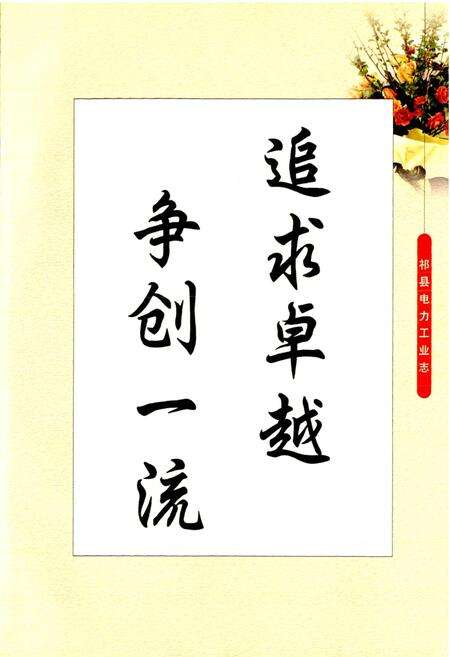 追求卓越
争创一流
祁县电力工业志